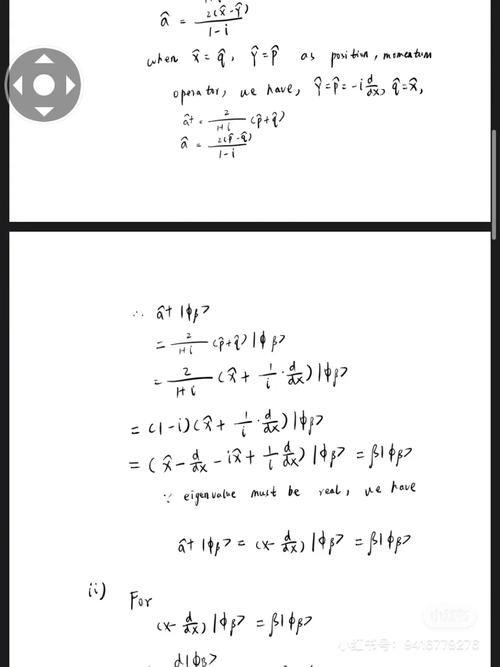 â = 2(x̂-ŷ) / 1-i
when x̂ = q̂, Ŷ = p̂ as position, momentum
operator, we have, Ŷ = p̂ = -i d/dx, q̂ = x̂,
â† = 2/1+i (p̂+q̂)
â = 2(p̂-q̂) / 1-i
∴ â† |ϕβ>
= 2/1+i (p̂+q̂) |ϕβ>
= 2/1+i (x̂ + 1/i · d/dx) |ϕβ>
= (1-i) (x̂ + 1/i · d/dx) |ϕβ>
= (x̂ - d/dx - ix̂ + 1/i d/dx) |ϕβ> = β|ϕβ>
∵ eigenvalue must be real, we have
â† |ϕβ> = (x - d/dx) |ϕβ> = β|ϕβ>
ii) For
(x - d/dx) |ϕβ> = β|ϕβ>
d|ϕβ>
小红书
小红书号: 9416779276